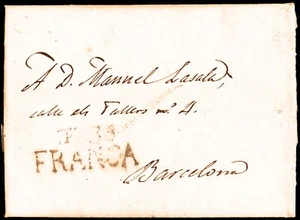 A D. Manuel Lasala,
calle de Tallers nº 4.
FRANCA
Barcelona